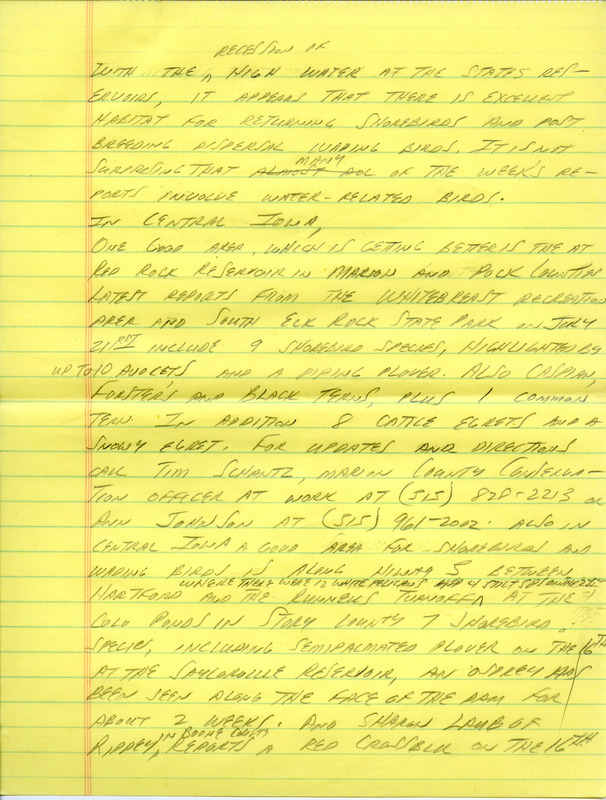 RECESSION OF
WITH THE ^ HIGH WATER AT THE STATES RES-
ERVOIRS, IT APPEARS THAT THERE IS EXCELLENT
HABITAT FOR RETURNING SHOREBIRDS AND POST
BREEDING DISPERSAL WADING BIRDS. IT IS NOT
MANY
SURPRISING THAT ALMOST ALL OF THE WEEK'S RE-
PORTS INVOLVE WATER-RELATED BIRDS.
IN CENTRAL IOWA,
ONE GOOD AREA, WHICH IS GETTING BETTER IS THE AT
RED ROCK RESERVOIR IN MARION AND POLK COUNTIES
LATEST REPORTS FROM THE WHITEBREAST RECREATION
AREA AND SOUTH ELK ROCK STATE PARK ON JULY
21ST INCLUDE 9 SHOREBIRD SPECIES, HIGHLIGHTED BY
UP TO 10 AVOCETS AND A PIPING PLOVER. ALSO CASPIAN,
FORSTER'S AND BLACK TERNS, PLUS 1 COMMON
TERN IN ADDITION 8 CATTLE EGRETS AND A
SNOWY EGRET. FOR UPDATES AND DIRECTIONS
CALL TIM SCHANTZ, MARION COUNTY CONSERVA-
TION OFFICER AT WORK AT (515) 828-2213 OR
ANN JOHNSON AT (515) 961-2002. ALSO IN
CENTRAL IOWA A GOOD AREA FOR SHOREBIRDS AND
WADING BIRDS IS ALONG HIWAY 5 BETWEEN
WHERE THERE WERE 12 WHITE PELICANS AND 4 STILT SDS ON THE
HARTFORD AND THE RUNNELLS TURNOFF ^ AT THE
COLO PONDS IN STORY COUNTY 7 SHOREBIRD
SPECIES, INCLUDING SEMIPALMATED PLOVER ON THE 16TH
AT THE SAYLORVILLE RESERVOIR, AN OSPREY HAS
BEEN SEEN ALONG THE FACE OF THE DAM FOR
ABOUT 2 WEEKS. AND SHARON LAUB OF
IN BOONE COUNTY
RIPPEY, REPORTS A RED CROSSBILL ON THE 16TH.